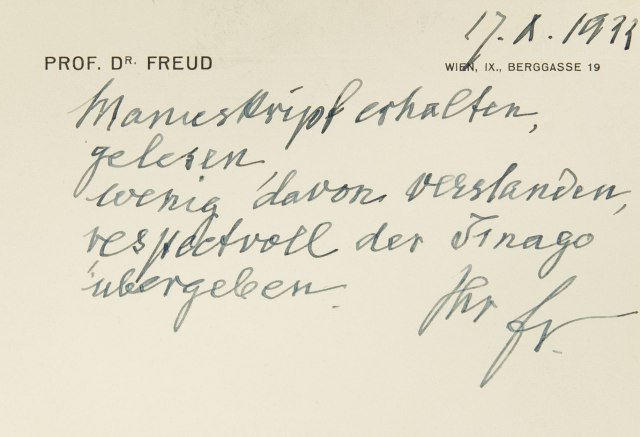 17. X. 1931
PROF. DR. FREUD
WIEN, IX., BERGGASSE 19
Manuskript erhalten,
gelesen,
wenig davon verstanden,
respectvoll der Imago
übergeben.
Ihr Fr.